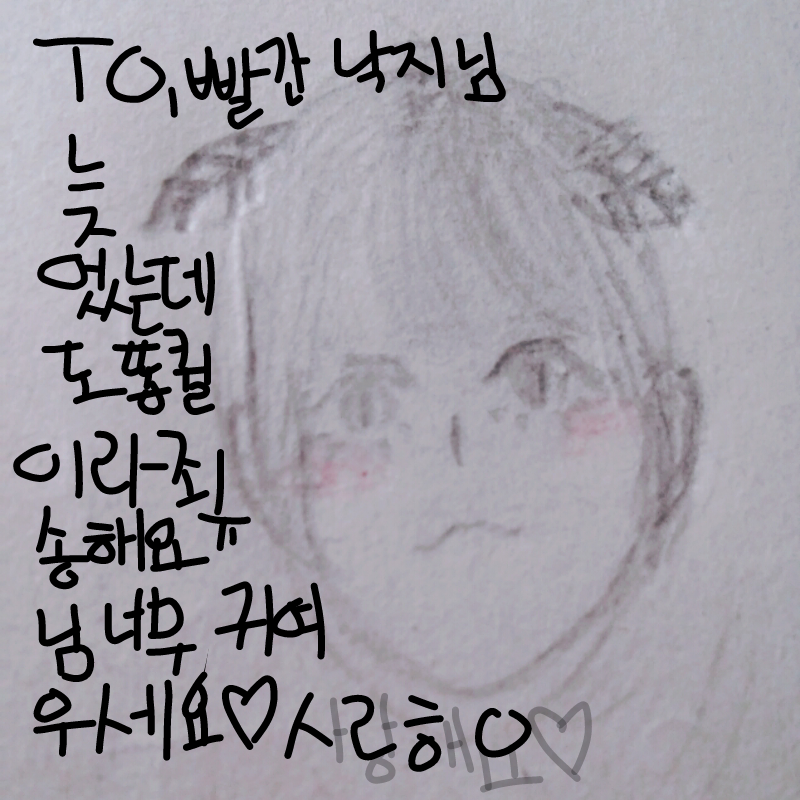 TO,빨간 낙지님
늦
었는데
도똥퀄
이라 죄ㅠ
송해요
님 너무 귀여
우세요♡ㅅㄹㅎㅇ
사랑해요♡